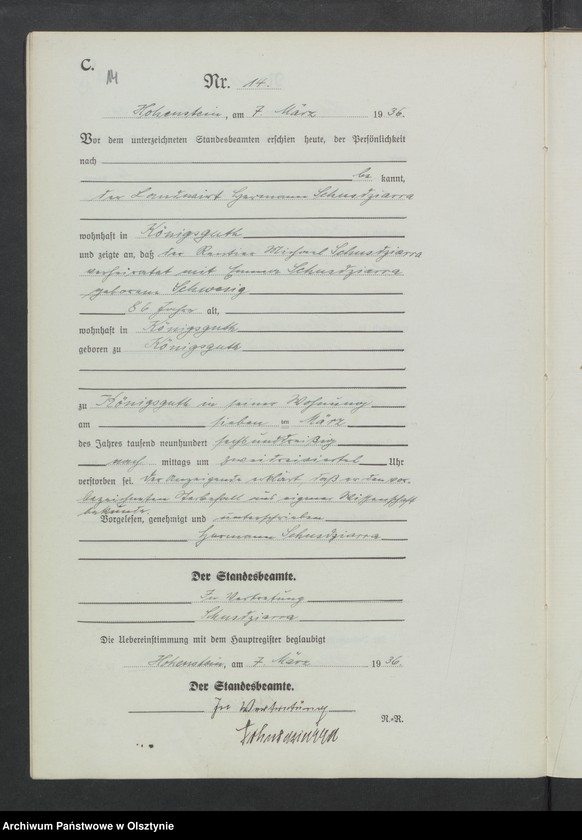 C.
14
Nr. 14.
Hohenstein, am 7. März 1936.
Vor dem unterzeichneten Standesbeamten erschien heute, der Persönlichkeit
nach
be kannt,
der Landwirt Hermann Schusdziarra
wohnhaft in Königsguth
und zeigte an, daß der Rentier Michael Schusdziarra
verheiratet mit Emma Schusdziarra
geborene Schwesig
86 Jahre alt,
wohnhaft in Königsguth
geboren zu Königsguth
zu Königsguth in seiner Wohnung
am sieben ten März
des Jahres tausend neunhundert sechsunddreißig
nach mittags um zweidreiviertel Uhr
verstorben sei. Der Anzeigende erklärt, daß er den vor-
bezeichneten Sterbefall aus eigener Wissenschaft
bekunde.
Vorgelesen, genehmigt und unterschrieben
Hermann Schusdziarra
Der Standesbeamte.
In Vertretung
Schusdziarra
Die Uebereinstimmung mit dem Hauptregister beglaubigt
Hohenstein, am 7. März 1936.
Der Standesbeamte.
In Vertretung
R.-R.
Schusdziarra
Archiwum Państwowe w Olsztynie